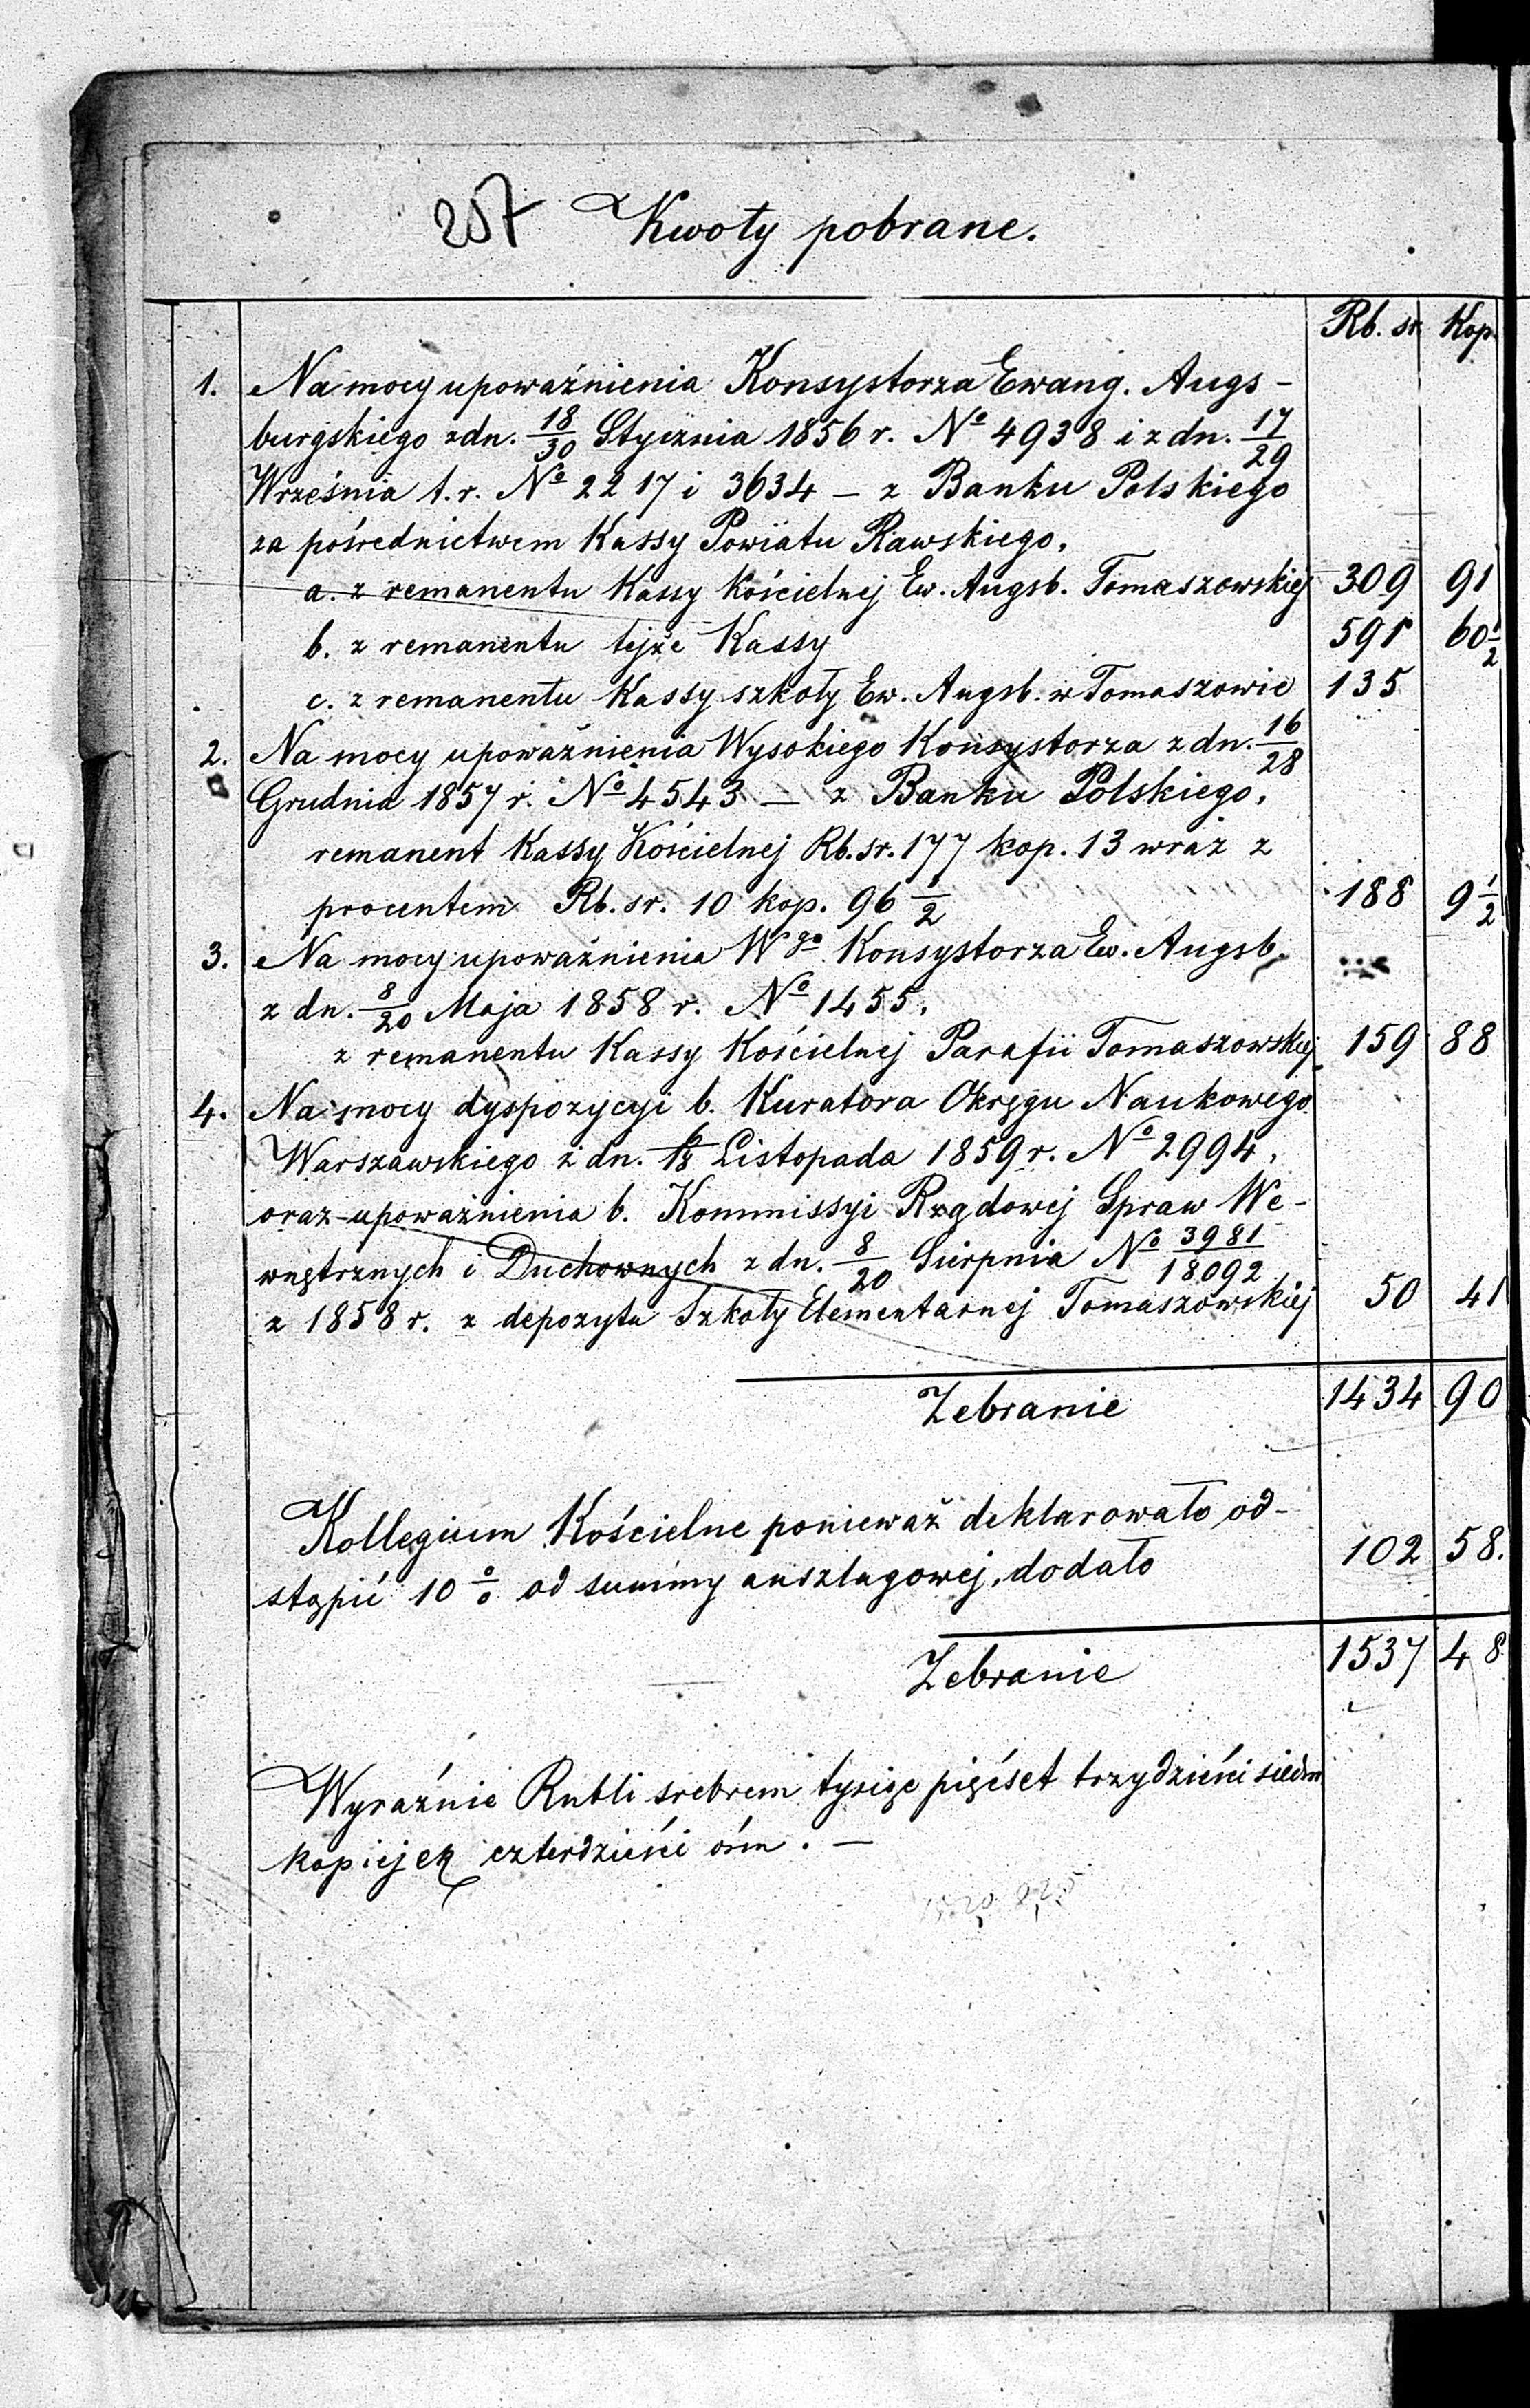 257 Kwoty pobrane.
Rb. sr. Kop.
1. Na mocy upoważnienia Konsystorza Ewang. Augs-
burgskiego z dn. 18/30 Stycznia 1856 r. No 4938 i z dn. 17/29
Września t. r. No 2217 i 3634 — z Banku Polskiego
za pośrednictwem Kassy Powiatu Rawskiego,
a. z remanentu Kassy Kościelnej Ew. Augsb. Tomaszowskiej 309 91
b. z remanentu tejże Kassy 591 60 1/2
c. z remanentu Kassy szkoły Ew. Augsb. w Tomaszowie 135
2. Na mocy upoważnienia Wysokiego Konsystorza z dn. 16/28
Grudnia 1857 r. No 4543 — z Banku Polskiego,
remanent Kassy Kościelnej Rb. sr. 177 kop. 13 wraz z
procentem Rb. sr. 10 kop. 96 1/2 188 9 1/2
3. Na mocy upoważnienia Wgo Konsystorza Ew. Augsb.
z dn. 8/20 Maja 1858 r. No 1455,
z remanentu Kassy Kościelnej Parafii Tomaszowskiej 159 88
4. Na mocy dyspozycyi b. Kuratora Okręgu Naukowego
Warszawskiego z dn. 6/18 Listopada 1859 r. No 2994,
oraz upoważnienia b. Kommissyi Rządowej Spraw We-
wnętrznych i Duchownych z dn. 8/20 Sierpnia No 3981/18092
z 1858 r. z depozytu Szkoły Elementarnej Tomaszowskiej 50 41
Zebranie 1434 90
Kollegium Kościelne ponieważ deklarowało od-
stąpić 10 % od summy anszlagowej, dodało 102 58.
Zebranie 1537 48
Wyraźnie Rubli srebrem tysiąc pięćset trzydzieści siedm
kopiejek czterdzieści ośm. —